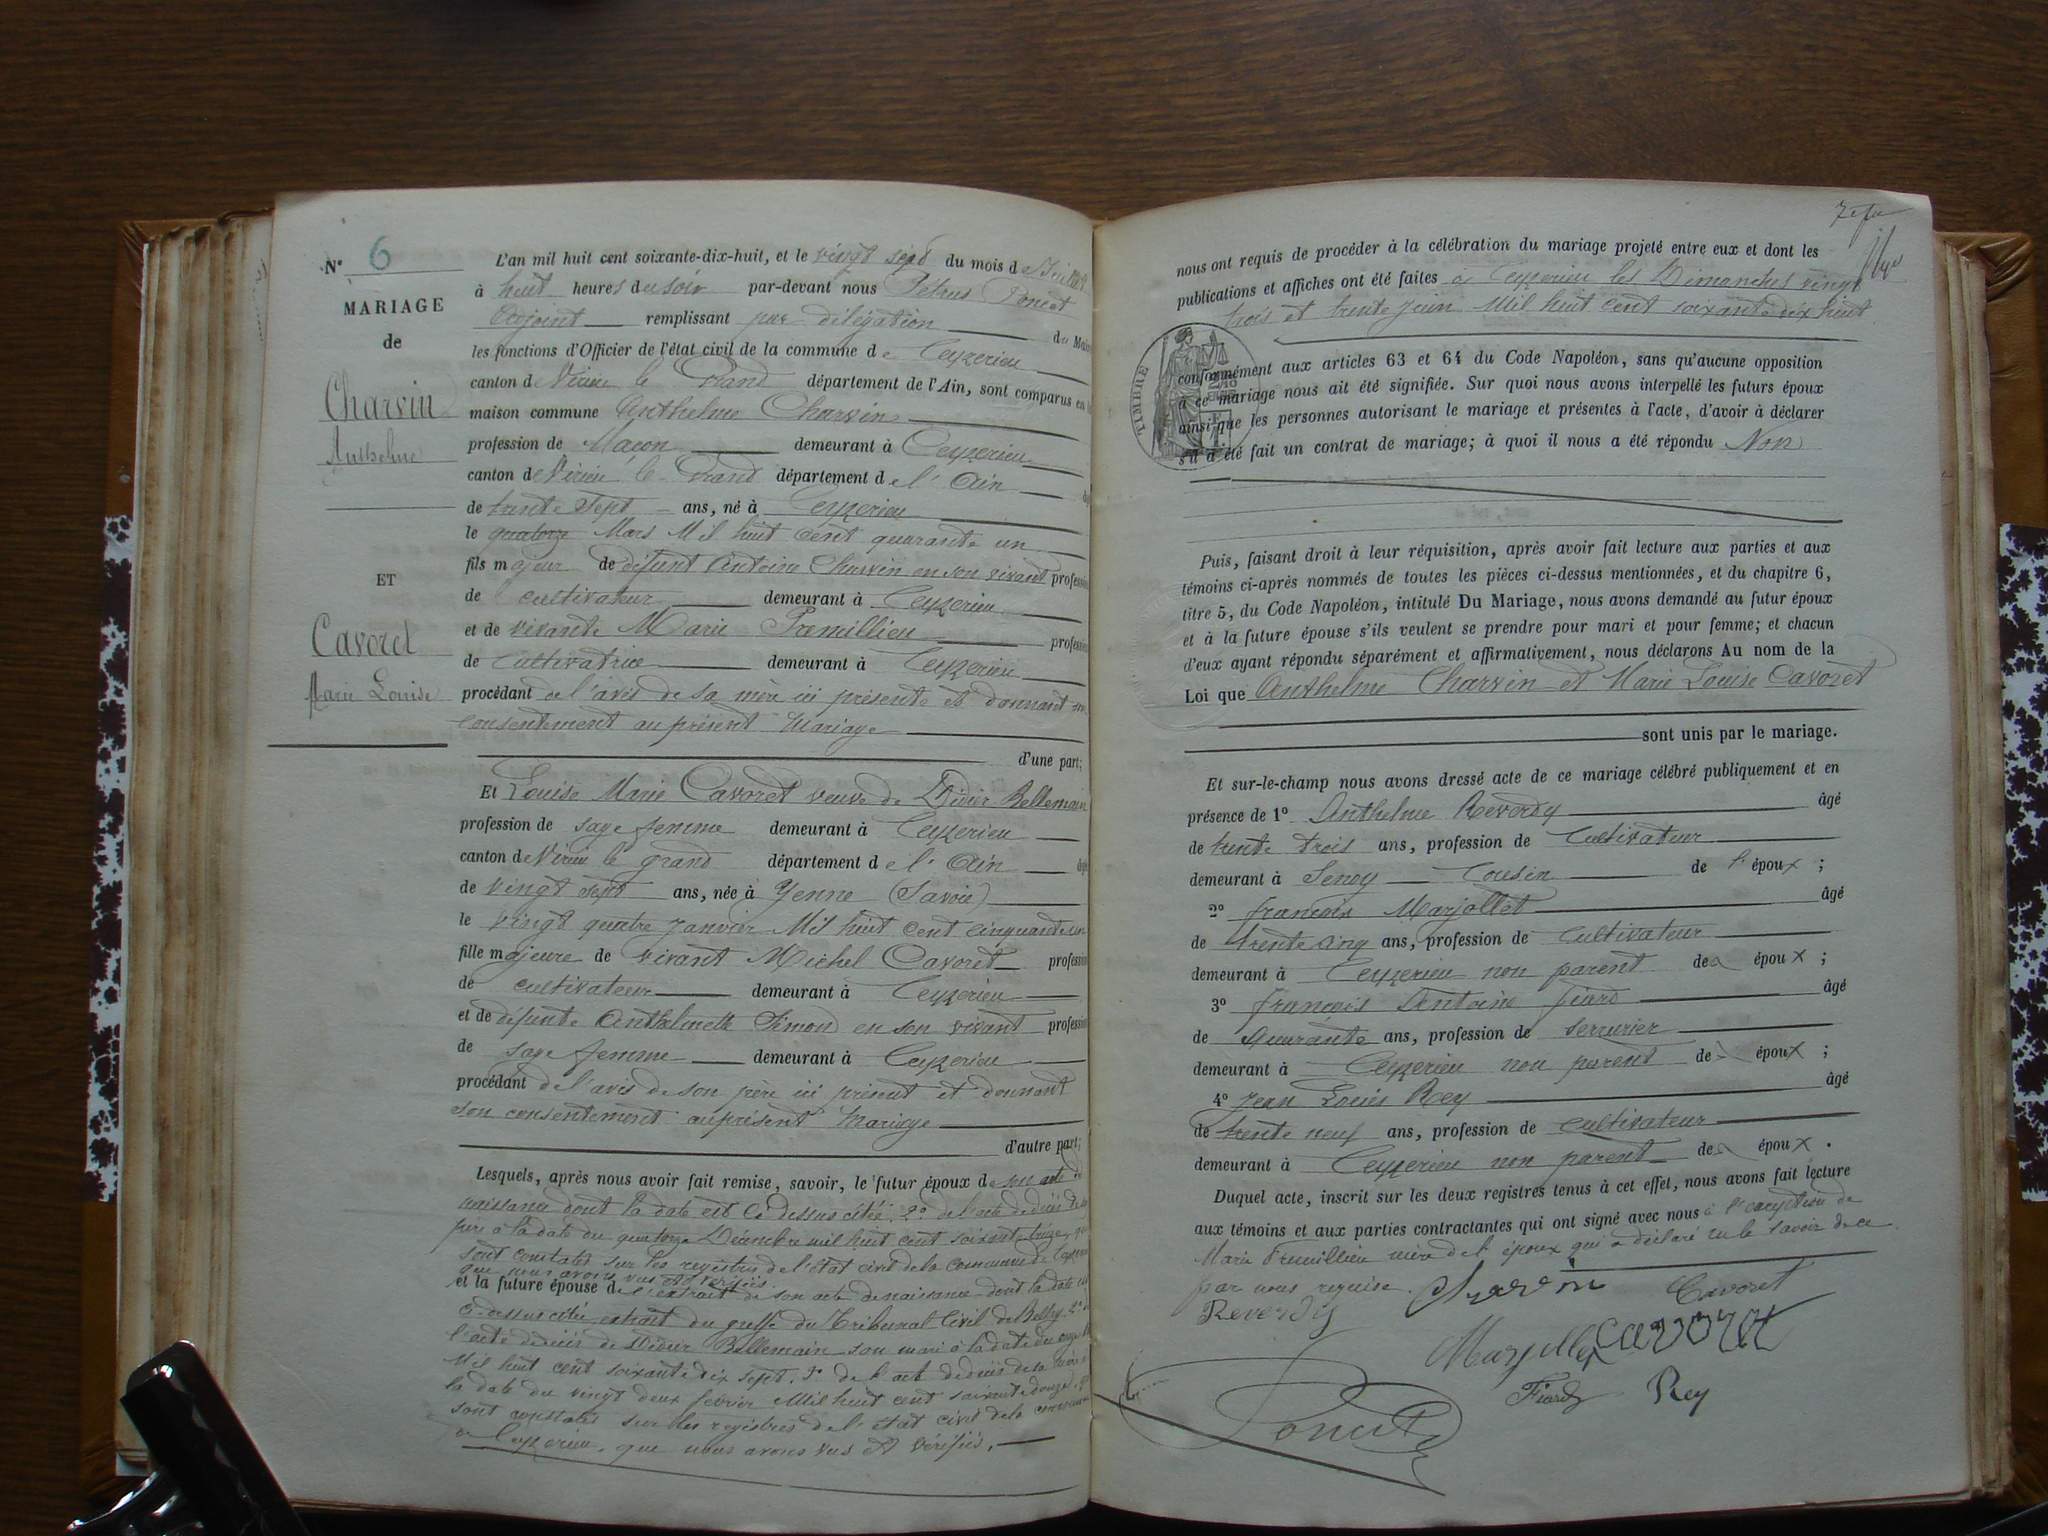 N° 6
MARIAGE
de
Charvin
Anthelme
ET
Cavoret
Marie Louise
L'an mil huit cent soixante-dix-huit, et le vingt sept du mois de Juillet
à huit heures du soir par-devant nous Pétrus Poncet
Adjoint remplissant par délégation du Maire
les fonctions d'Officier de l'état civil de la commune de Ceyzerieu
canton de Virieu le Grand département de l'Ain, sont comparus en la
maison commune Anthelme Charvin
profession de Maçon demeurant à Ceyzerieu
canton de Virieu le Grand département de l'Ain
de trente sept ans, né à Ceyzerieu
le quatorze Mars Mil huit cent quarante un
fils majeur de défunt Antoine Charvin en son vivant profession
de cultivateur demeurant à Ceyzerieu
et de vivante Marie Premillieu profession
de cultivatrice demeurant à Ceyzerieu
procédant de l'avis de sa mère ici présente et donnant son
consentement au présent Mariage
d'une part;
Et Louise Marie Cavoret veuve de Didier Bellemain
profession de sage femme demeurant à Ceyzerieu
canton de Virieu le grand département de l'Ain âgée
de vingt sept ans, née à Yenne (Savoie)
le vingt quatre Janvier Mil huit cent cinquante un
fille majeure de vivant Michel Cavoret profession
de cultivateur demeurant à Ceyzerieu
et de défunte Anthelmette Simond en son vivant profession
de sage femme demeurant à Ceyzerieu
procédant de l'avis de son père ici présent et donnant
son consentement au présent Mariage
d'autre part;
Lesquels, après nous avoir fait remise, savoir, le futur époux de son acte de
naissance dont la date est ci dessus citée. 2° de l'acte de décès de son
père à la date du quatorze Décembre mil huit cent soixante treize, qui
sont constatés sur les registres de l'état civil de la commune de Ceyzerieu
que nous avons vus et vérifiés.
et la future épouse de l'extrait de son acte de naissance dont la date est
ci-dessus citée, extrait du greffe du Tribunal Civil de Belley. 2° de
l'acte de décès de Didier Bellemain son mari à la date du onze
Mil huit cent soixante dix sept. 3° de l'acte de décès de sa mère à
la date du vingt deux février Mil huit cent soixante douze, qui
sont constatés sur les registres de l'état civil de la commune
de Ceyzerieu, que nous avons vus et vérifiés.
7e fu
nous ont requis de procéder à la célébration du mariage projeté entre eux et dont les
publications et affiches ont été faites à Ceyzerieu les Dimanches vingt
trois et trente Juin Mil huit cent soixante dix huit
TIMBRE
conformément aux articles 63 et 64 du Code Napoléon, sans qu'aucune opposition
à ce mariage nous ait été signifiée. Sur quoi nous avons interpellé les futurs époux
ainsi que les personnes autorisant le mariage et présentes à l'acte, d'avoir à déclarer
s'il a été fait un contrat de mariage; à quoi il nous a été répondu Non
Puis, faisant droit à leur réquisition, après avoir fait lecture aux parties et aux
témoins ci-après nommés de toutes les pièces ci-dessus mentionnées, et du chapitre 6,
titre 5, du Code Napoléon, intitulé Du Mariage, nous avons demandé au futur époux
et à la future épouse s'ils veulent se prendre pour mari et pour femme; et chacun
d'eux ayant répondu séparément et affirmativement, nous déclarons Au nom de la
Loi que Anthelme Charvin et Marie Louise Cavoret
sont unis par le mariage.
Et sur-le-champ nous avons dressé acte de ce mariage célébré publiquement et en
présence de 1° Anthelme Reverdy âgé
de trente trois ans, profession de Cultivateur
demeurant à Senoy Cousin de l'époux;
2° françois Marjollet âgé
de trente cinq ans, profession de Cultivateur
demeurant à Ceyzerieu non parent des époux;
3° françois Antoine fiard âgé
de Quarante ans, profession de serrurier
demeurant à Ceyzerieu non parent des époux;
4° Jean Louis Rey âgé
de trente neuf ans, profession de cultivateur
demeurant à Ceyzerieu non parent des époux.
Duquel acte, inscrit sur les deux registres tenus à cet effet, nous avons fait lecture
aux témoins et aux parties contractantes qui ont signé avec nous à l'exception de
Marie Premillieu mère de l'époux qui a déclaré ne le savoir de ce
par nous requise. Charvin Cavoret
Reverdy
Marjollet Cavoret
Fiard Rey
Poncet